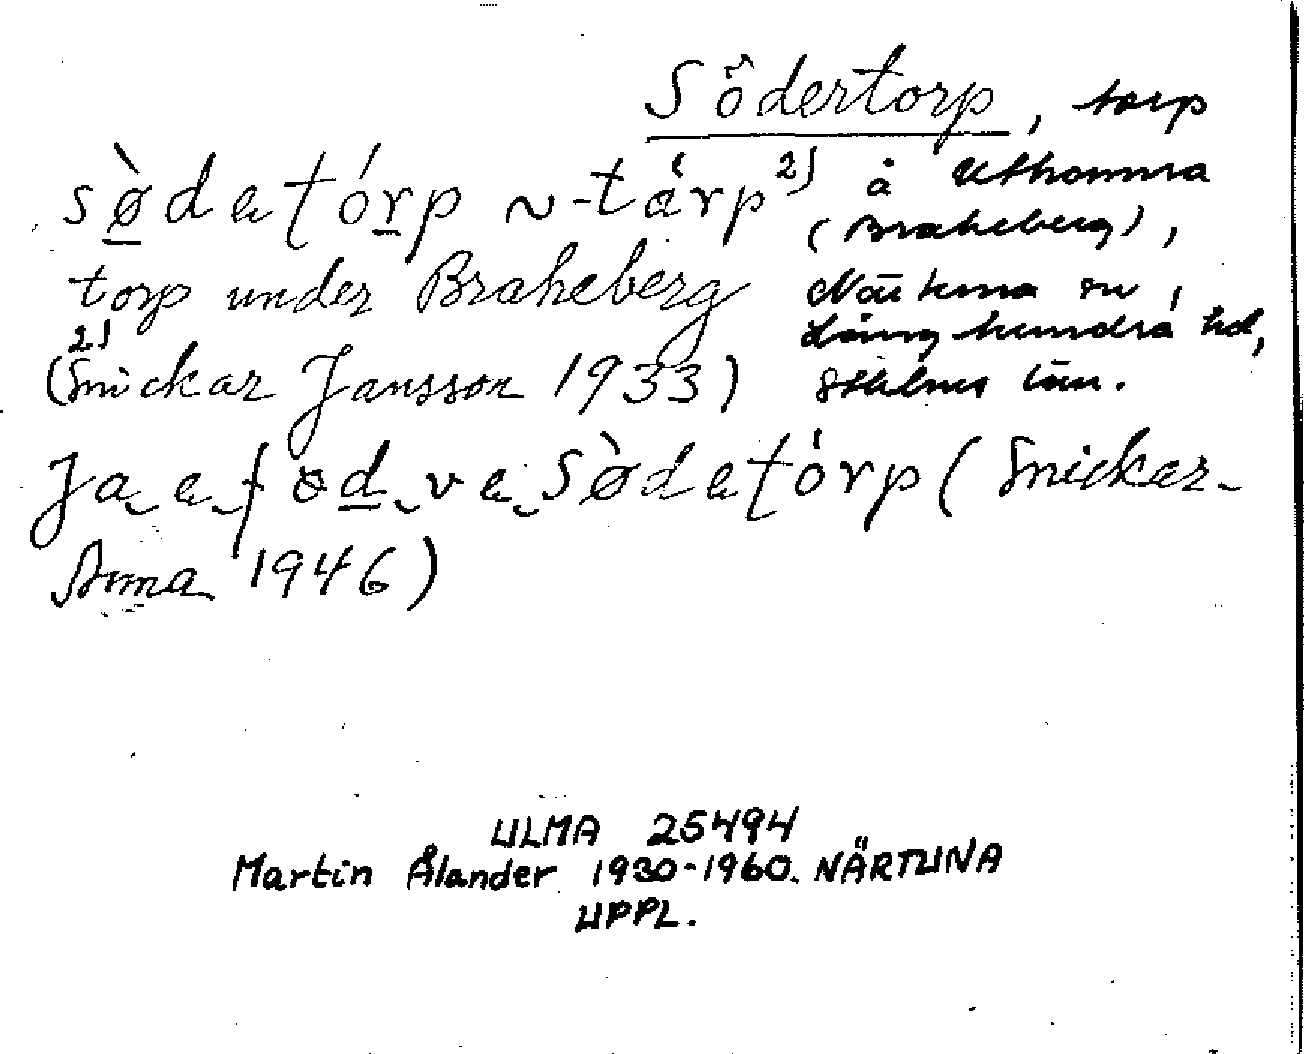 Södertorp, torp
å Uthamra
(Braheberg),
Närtuna sn,
Långhundra hd,
Sthlms län.
sø̀datórp ~ -tårp 2)
torp under Braheberg
2)
(Snickar Jansson 1933)
Ja a fød va Sø̀datórp (Snickar-
Anna 1946)
ULMA 25494
Martin Ålander 1930-1960. NÄRTUNA
UPPL.